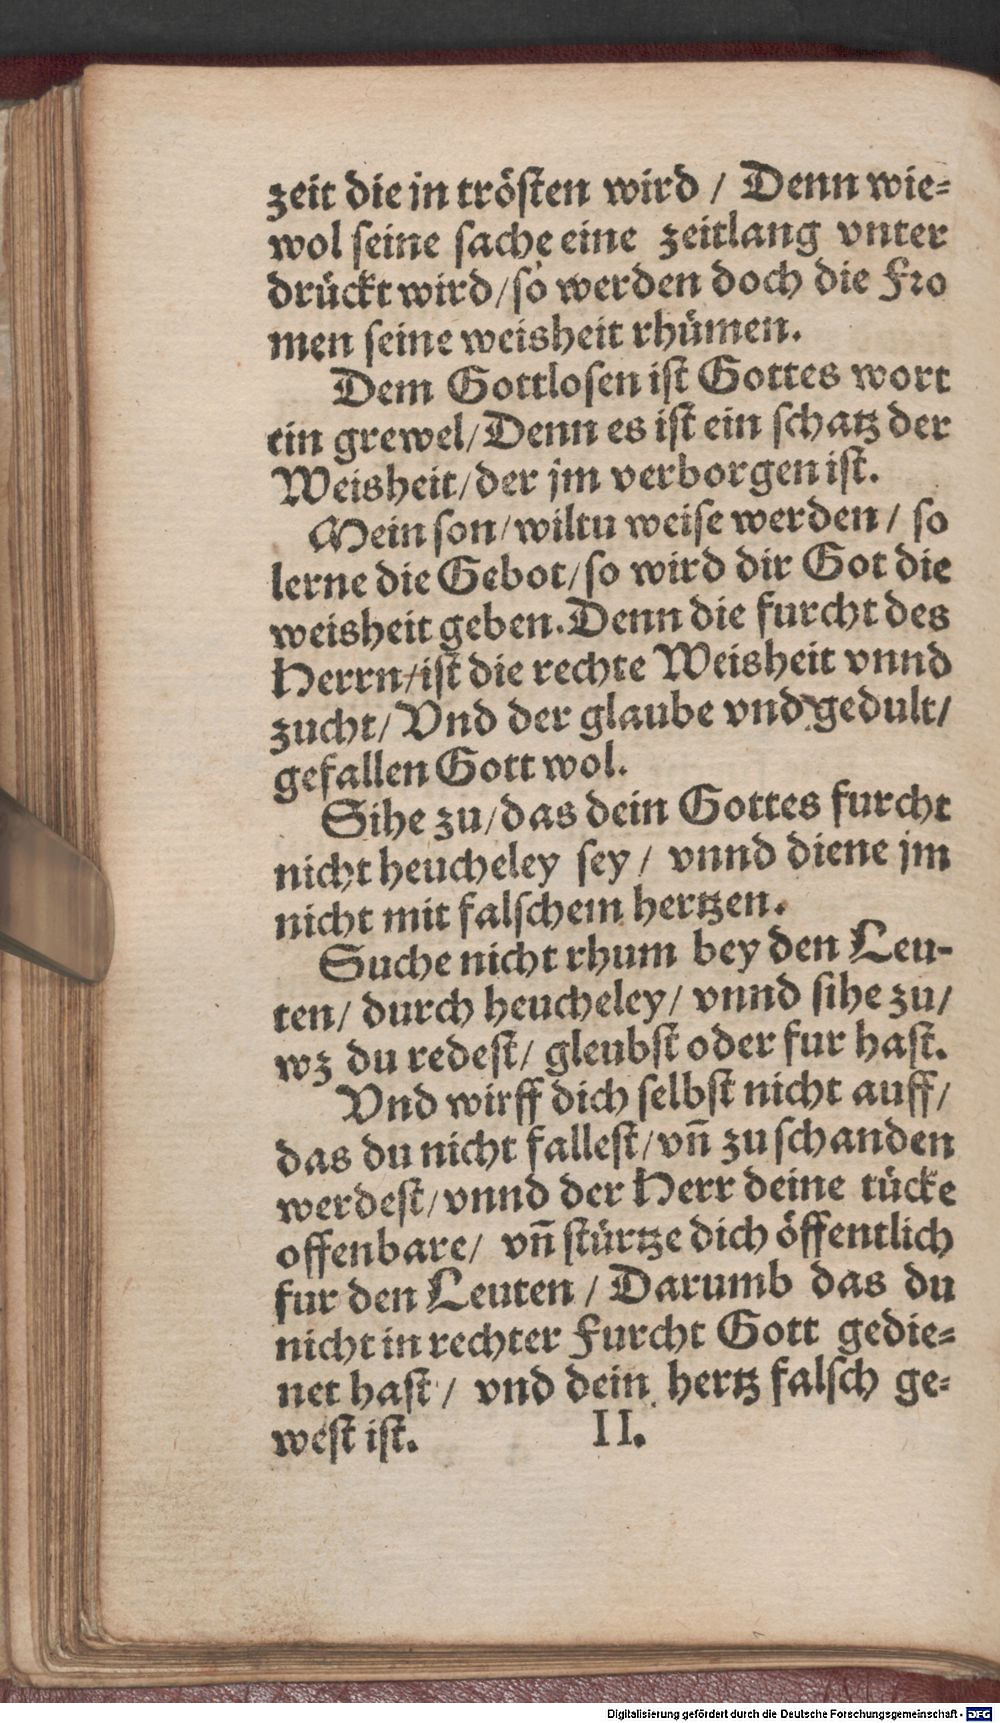 zeit die in trösten wird / Denn wie=
wol seine sache eine zeitlang vnter
drückt wird/so werden doch die Fro
men seine weisheit rhümen.
Dem Gottlosen ist Gottes wort
ein grewel/Denn es ist ein schatz der
Weisheit/der jm verborgen ist.
Mein son/wiltu weise werden/ so
lerne die Gebot/so wird dir Got die
weisheit geben.Denn die furcht des
Herrn/ist die rechte Weisheit vnnd
zucht/Vnd der glaube vnd gedult/
gefallen Gott wol.
Sihe zu/das dein Gottes furcht
nicht heucheley sey/ vnnd diene jm
nicht mit falschem hertzen.
Suche nicht rhum bey den Leu-
ten/ durch heucheley/ vnnd sihe zu/
wz du redest/ gleubst oder fur hast.
Vnd wirff dich selbst nicht auff/
das du nicht fallest/vn̄ zu schanden
werdest/vnnd der Herr deine tücke
offenbare/ vn̄ stürtze dich öffentlich
fur den Leuten / Darumb das du
nicht in rechter Furcht Gott gedie=
net hast/ vnd dein hertz falsch ge=
west ist. II.
Digitalisierung gefördert durch die Deutsche Forschungsgemeinschaft - DFG